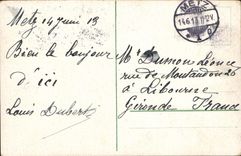 METZ
14.6.13.
Metz 14 Juin 13
Bien le bonjour
d'ici
Louis Dubert
Mr Dumon Léonce
rue de Montaudon 26
à Libourne
Gironde France